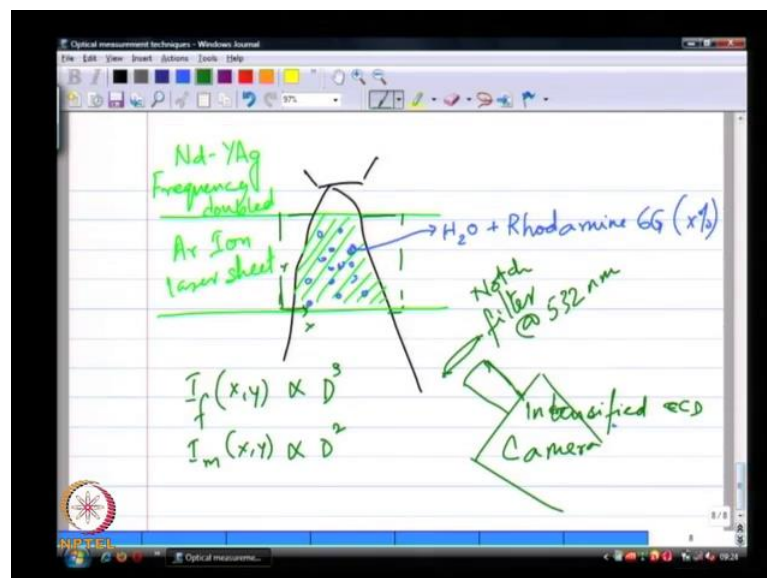 Optical measurement techniques - Windows Journal
File Edit View Insert Actions Tools Help
97%
Nd-YAg
Frequency
doubled
Ar Ion
laser sheet
H₂O + Rhodamine 6G (x%)
Notch
filter
@ 532 nm
y
x
I_f (x,y) ∝ D³
I_m (x,y) ∝ D²
Intensified CCD
Camera
8/8
8
NPTEL
Optical measureme...
09:24